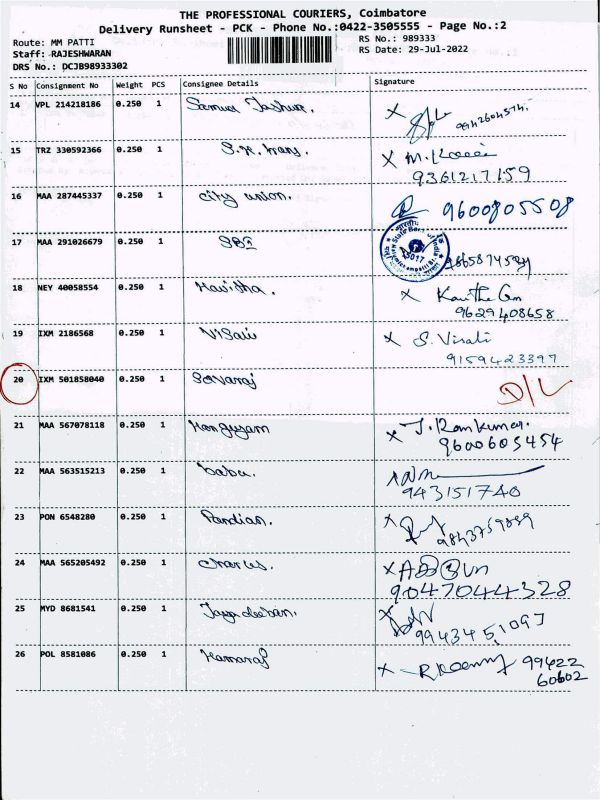 THE PROFESSIONAL COURIERS, Coimbatore
Delivery Runsheet - PCK - Phone No.:0422-3505555 - Page No.:2
Route: MM PATTI
RS No.: 989333
Staff: RAJESHWARAN
RS Date: 29-Jul-2022
DRS No.: DCJB98933302
S No Consignment No Weight PCS Consignee Details Signature
14 VPL 214218186 0.250 1 Samuel Joshua.
15 TRZ 330592366 0.250 1 S.K. trans.
9361217159
16 MAA 287445337 0.250 1 City union. 9600805508
17 MAA 291026679 0.250 1 SBI
18 NEY 40058554 0.250 1 Kavisha.
9629408658
19 IXM 2186568 0.250 1 Visali X S. Visali
9159423397
20 IXM 501858040 0.250 1 Selvaraj D/L
21 MAA 567078118 0.250 1 X J. Ramkumar.
9600605454
22 MAA 563515213 0.250 1 babu.
943151740
23 PON 6548280 0.250 1 Pandian. X
9843759899
24 MAA 565205492 0.250 1 Charles. X
9047044328
25 MYD 8681541 0.250 1
26 POL 8581086 0.250 1 Kamaraj X 99422
60602